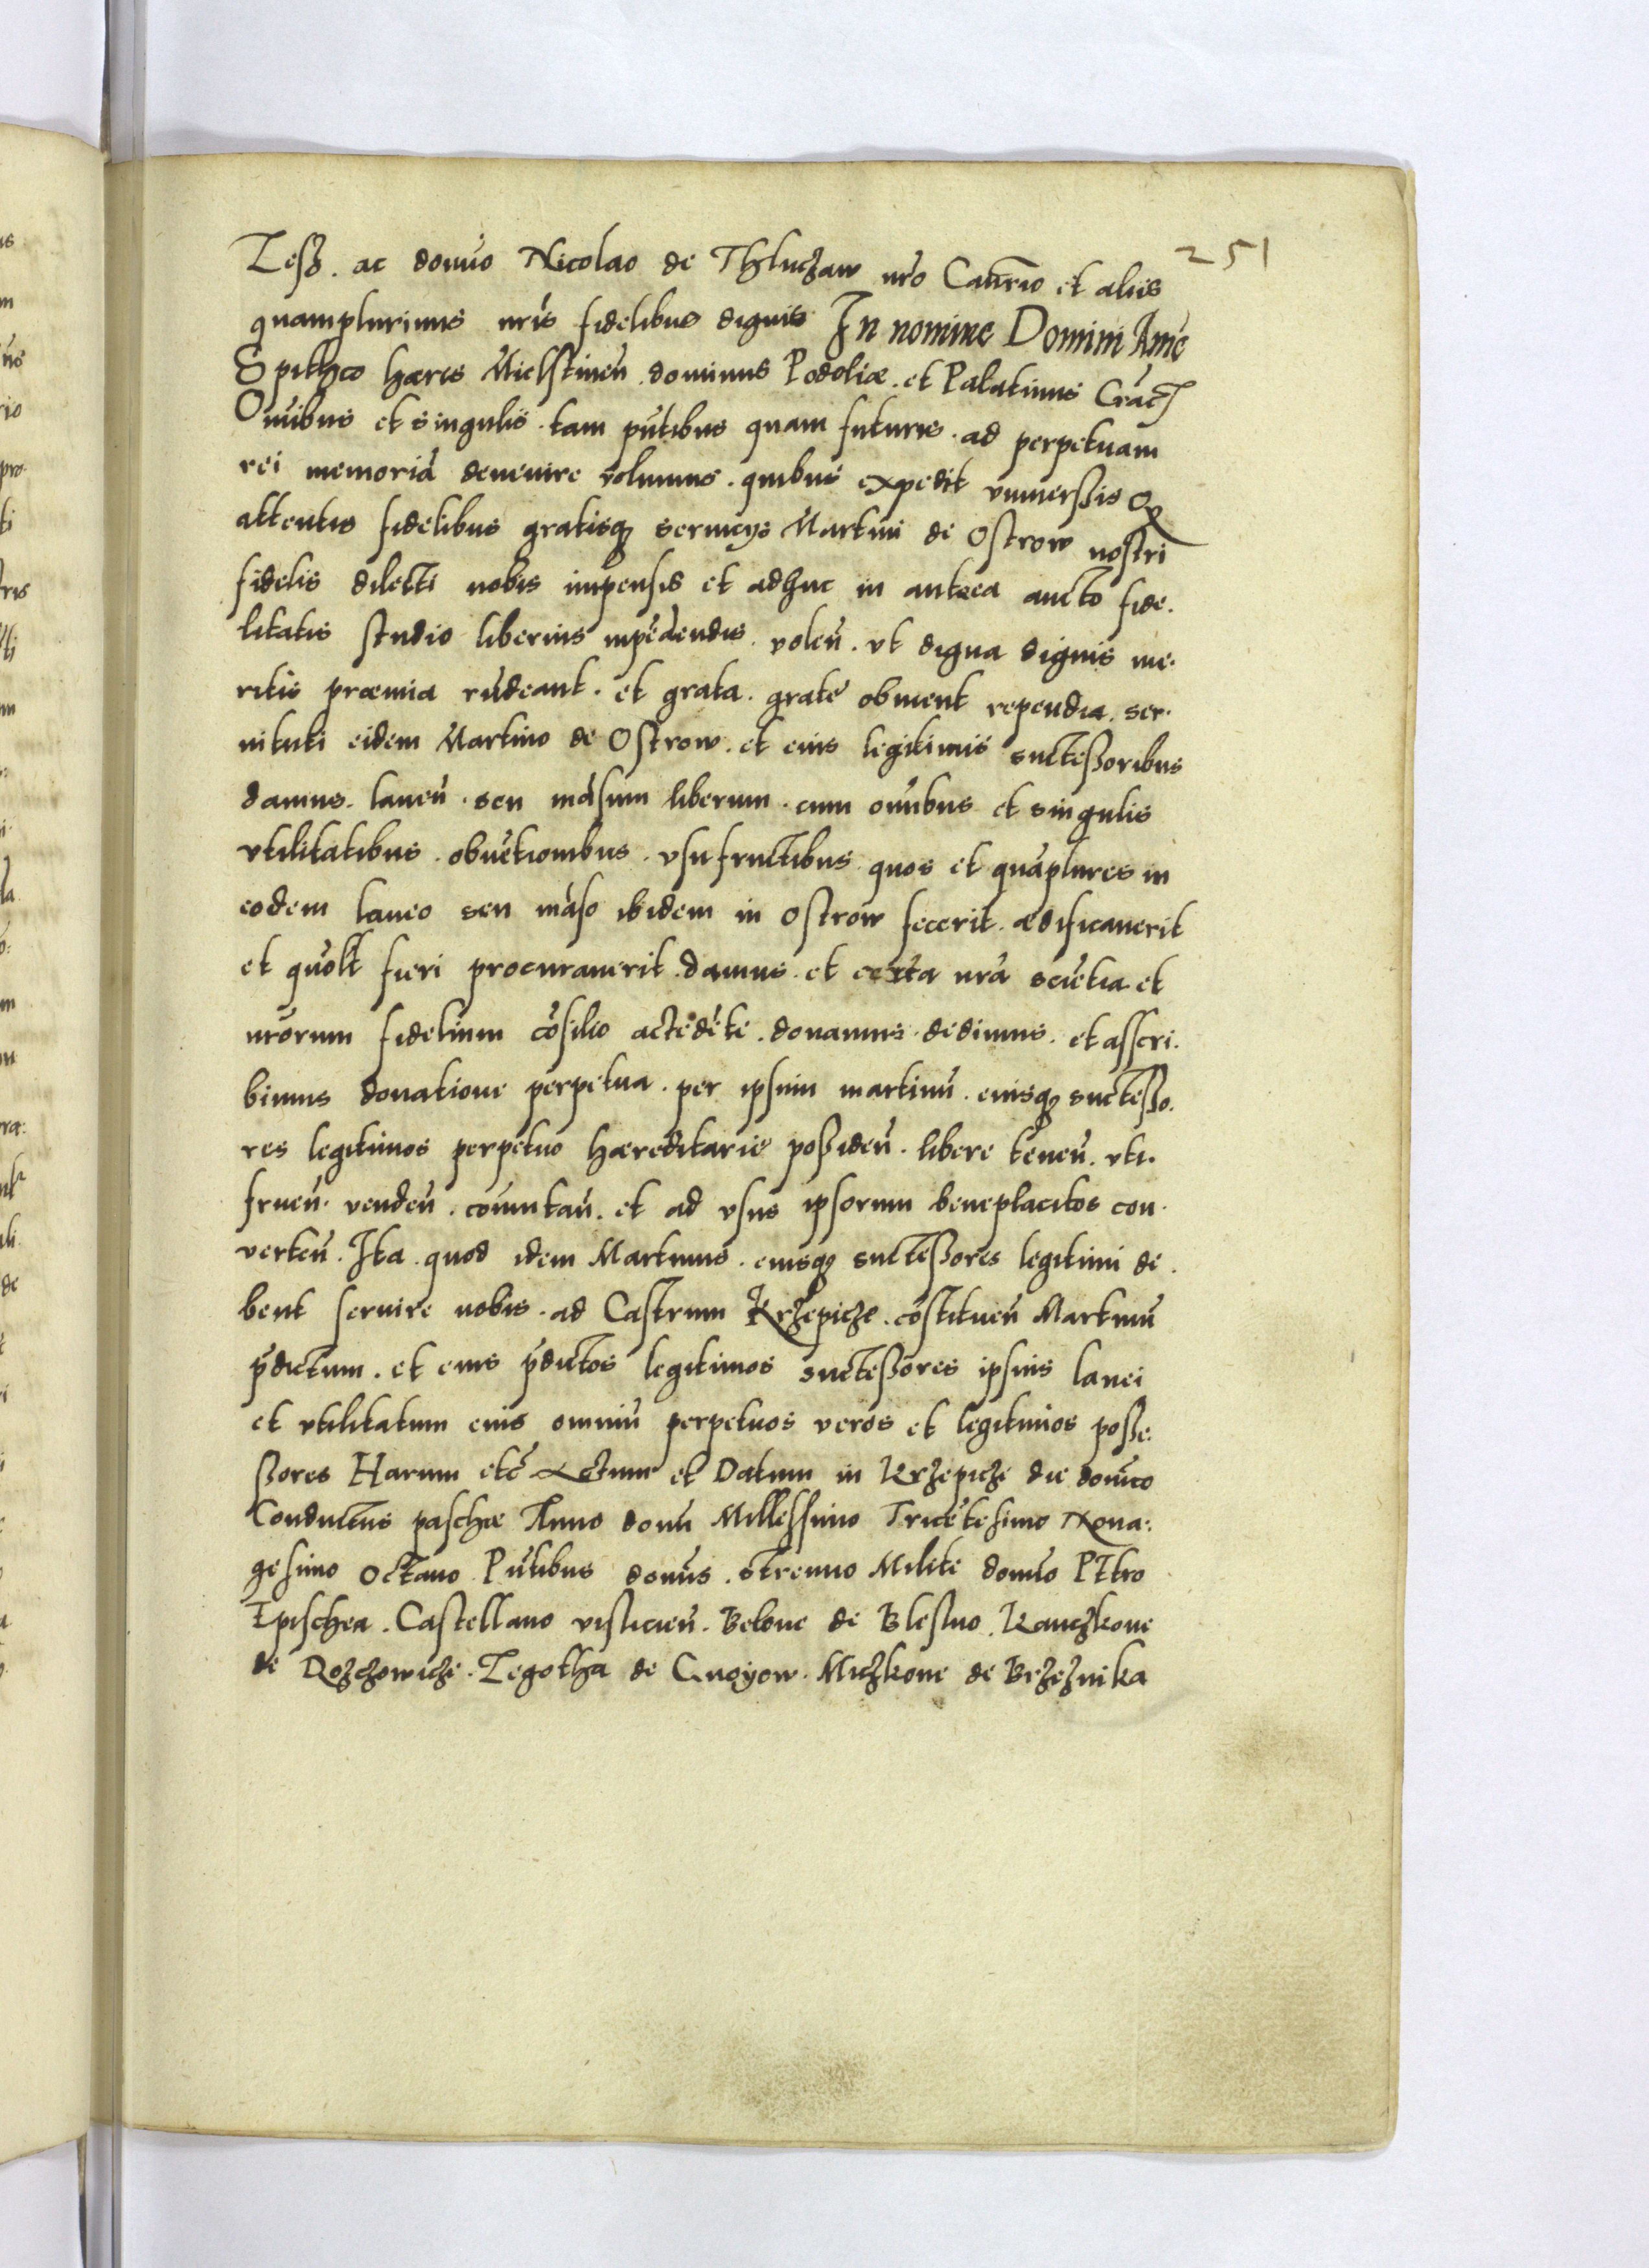 251
Lesz. ac domĩo Nicolao de Thluczaw nr̃o Canr̃io et aliis
quamplurimis nr̃is fidelibus dignis In nomine Domini Amẽ
Spithco hæres Mielstineñ. dominus Podoliæ. et Palatinus Crac̃
Om̃ibus et singulis. tam pñtibus quam futuris. ad perpetuam
rei memoriã devenire volumus. quibus expedit vniuerssis Q
attentis fidelibus gratisq₃ seruicÿs Martini de Ostrow nostri
fidelis dilecti nobis impensis et adhuc in antea aucto fide.
litatis studio liberius impẽdendis. voleñ. vt digna dignis me.
ritis præmia rñdeant. et grata. gratẽ obuient rependia. ser.
uituti eidem Martino de Ostrow. et eius legitimis successoribus
damus. laneũ. seu mãsum liberum. cum om̃ibus et singulis
vtilitatibus. obuẽtionibus. vsufructibus quos et quãplures in
eodem laneo seu mãso ibidem in Ostrow fecerit. ædificauerit
et quõlt fieri procurauerit. damus. et certa nr̃a sciẽtia et
nr̃orum fidelium cõsilio accedẽte. donamus. dedimus. et asscri.
bimus donatione perpetua. per ipsum martinũ. eiusq₃ successo.
res legitimos perpetuo hæreditarie possideñ. libere teneñ. vti.
frueñ. vendeñ. cõmutañ. et ad vsus ipsorum beneplacitos con.
verteñ. Ita. quod idem Martinus. eiusq₃ successores legitimi de.
bent seruire nobis. ad Castrum Krzepicze. cõstitueñ Martinũ
p̃dictum. et eius p̃dictos legitimos successores ipsius lanei
et vtilitatum eius omniũ perpetuos veros et legitimos posse.
ssores Harum etc̃ Actum et Datum in Krzepicze die domĩco
Conductus paschæ Anno domĩ Millessimo Tricẽtesimo Nona:
gesimo Octauo Pñtibus domĩs. strenuo Milite domĩo Petro
Epischca. Castellano visliciẽn. Belone de Blesnо. Kauczkone
de Rozchowicze. Legotha de Gnoÿow. Miczkone de Brzeznika